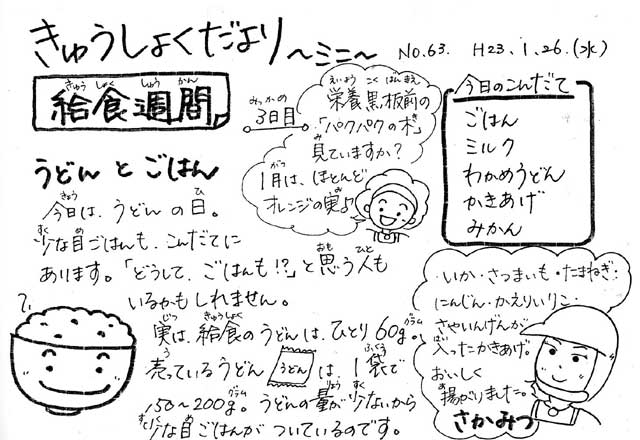 きゅうしょくだより〜ミニ〜
No.63. H23.1.26.(水)
給食週間
3日目
栄養黒板前の
「パクパクの木」
見ていますか？
1月は、ほとんど
オレンジの実♪
今日のこんだて
ごはん
ミルク
わかめうどん
かきあげ
みかん
うどんとごはん
今日は、うどんの日。
少な目ごはんも、こんだてに
あります。「どうして、ごはんも!?」と思う人も
いるかもしれません。
実は、給食のうどんは、ひとり60g。
売っているうどん うどん は、1袋で
150〜200g。うどんの量が少ないから
少な目ごはんがついているのです。
・いか・さつまいも・たまねぎ・
にんじん・かえりいりこ・
さやいんげんが
入ったかきあげ。
おいしく
揚がりました。
さかみつ